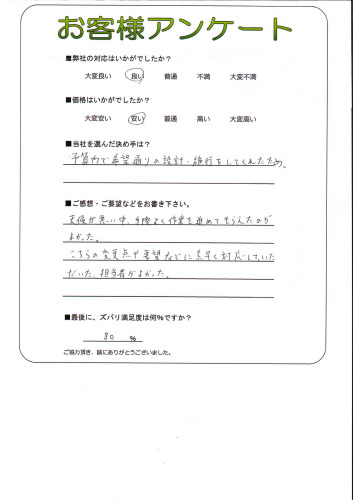 お客様アンケート
■弊社の対応はいかがでしたか?
大変良い 良い 普通 不満 大変不満
■価格はいかがでしたか?
大変安い 安い 普通 高い 大変高い
■当社を選んだ決め手は?
予算内で希望通りの設計・施行をしてくれたため。
■ご感想・ご要望などをお書き下さい。
天候が悪い中、手際よく作業を進めてもらえたのが
よかった。
こちらの変更点や要望などに素早く対応していた
だいた、担当者がよかった。
■最後に、ズバリ満足度は何%ですか?
80 %
ご協力頂き、誠にありがとうございました。